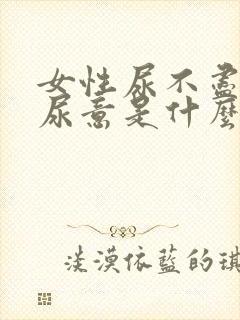 女性尿不盡
尿意是什麼
淡漠依藍的琪